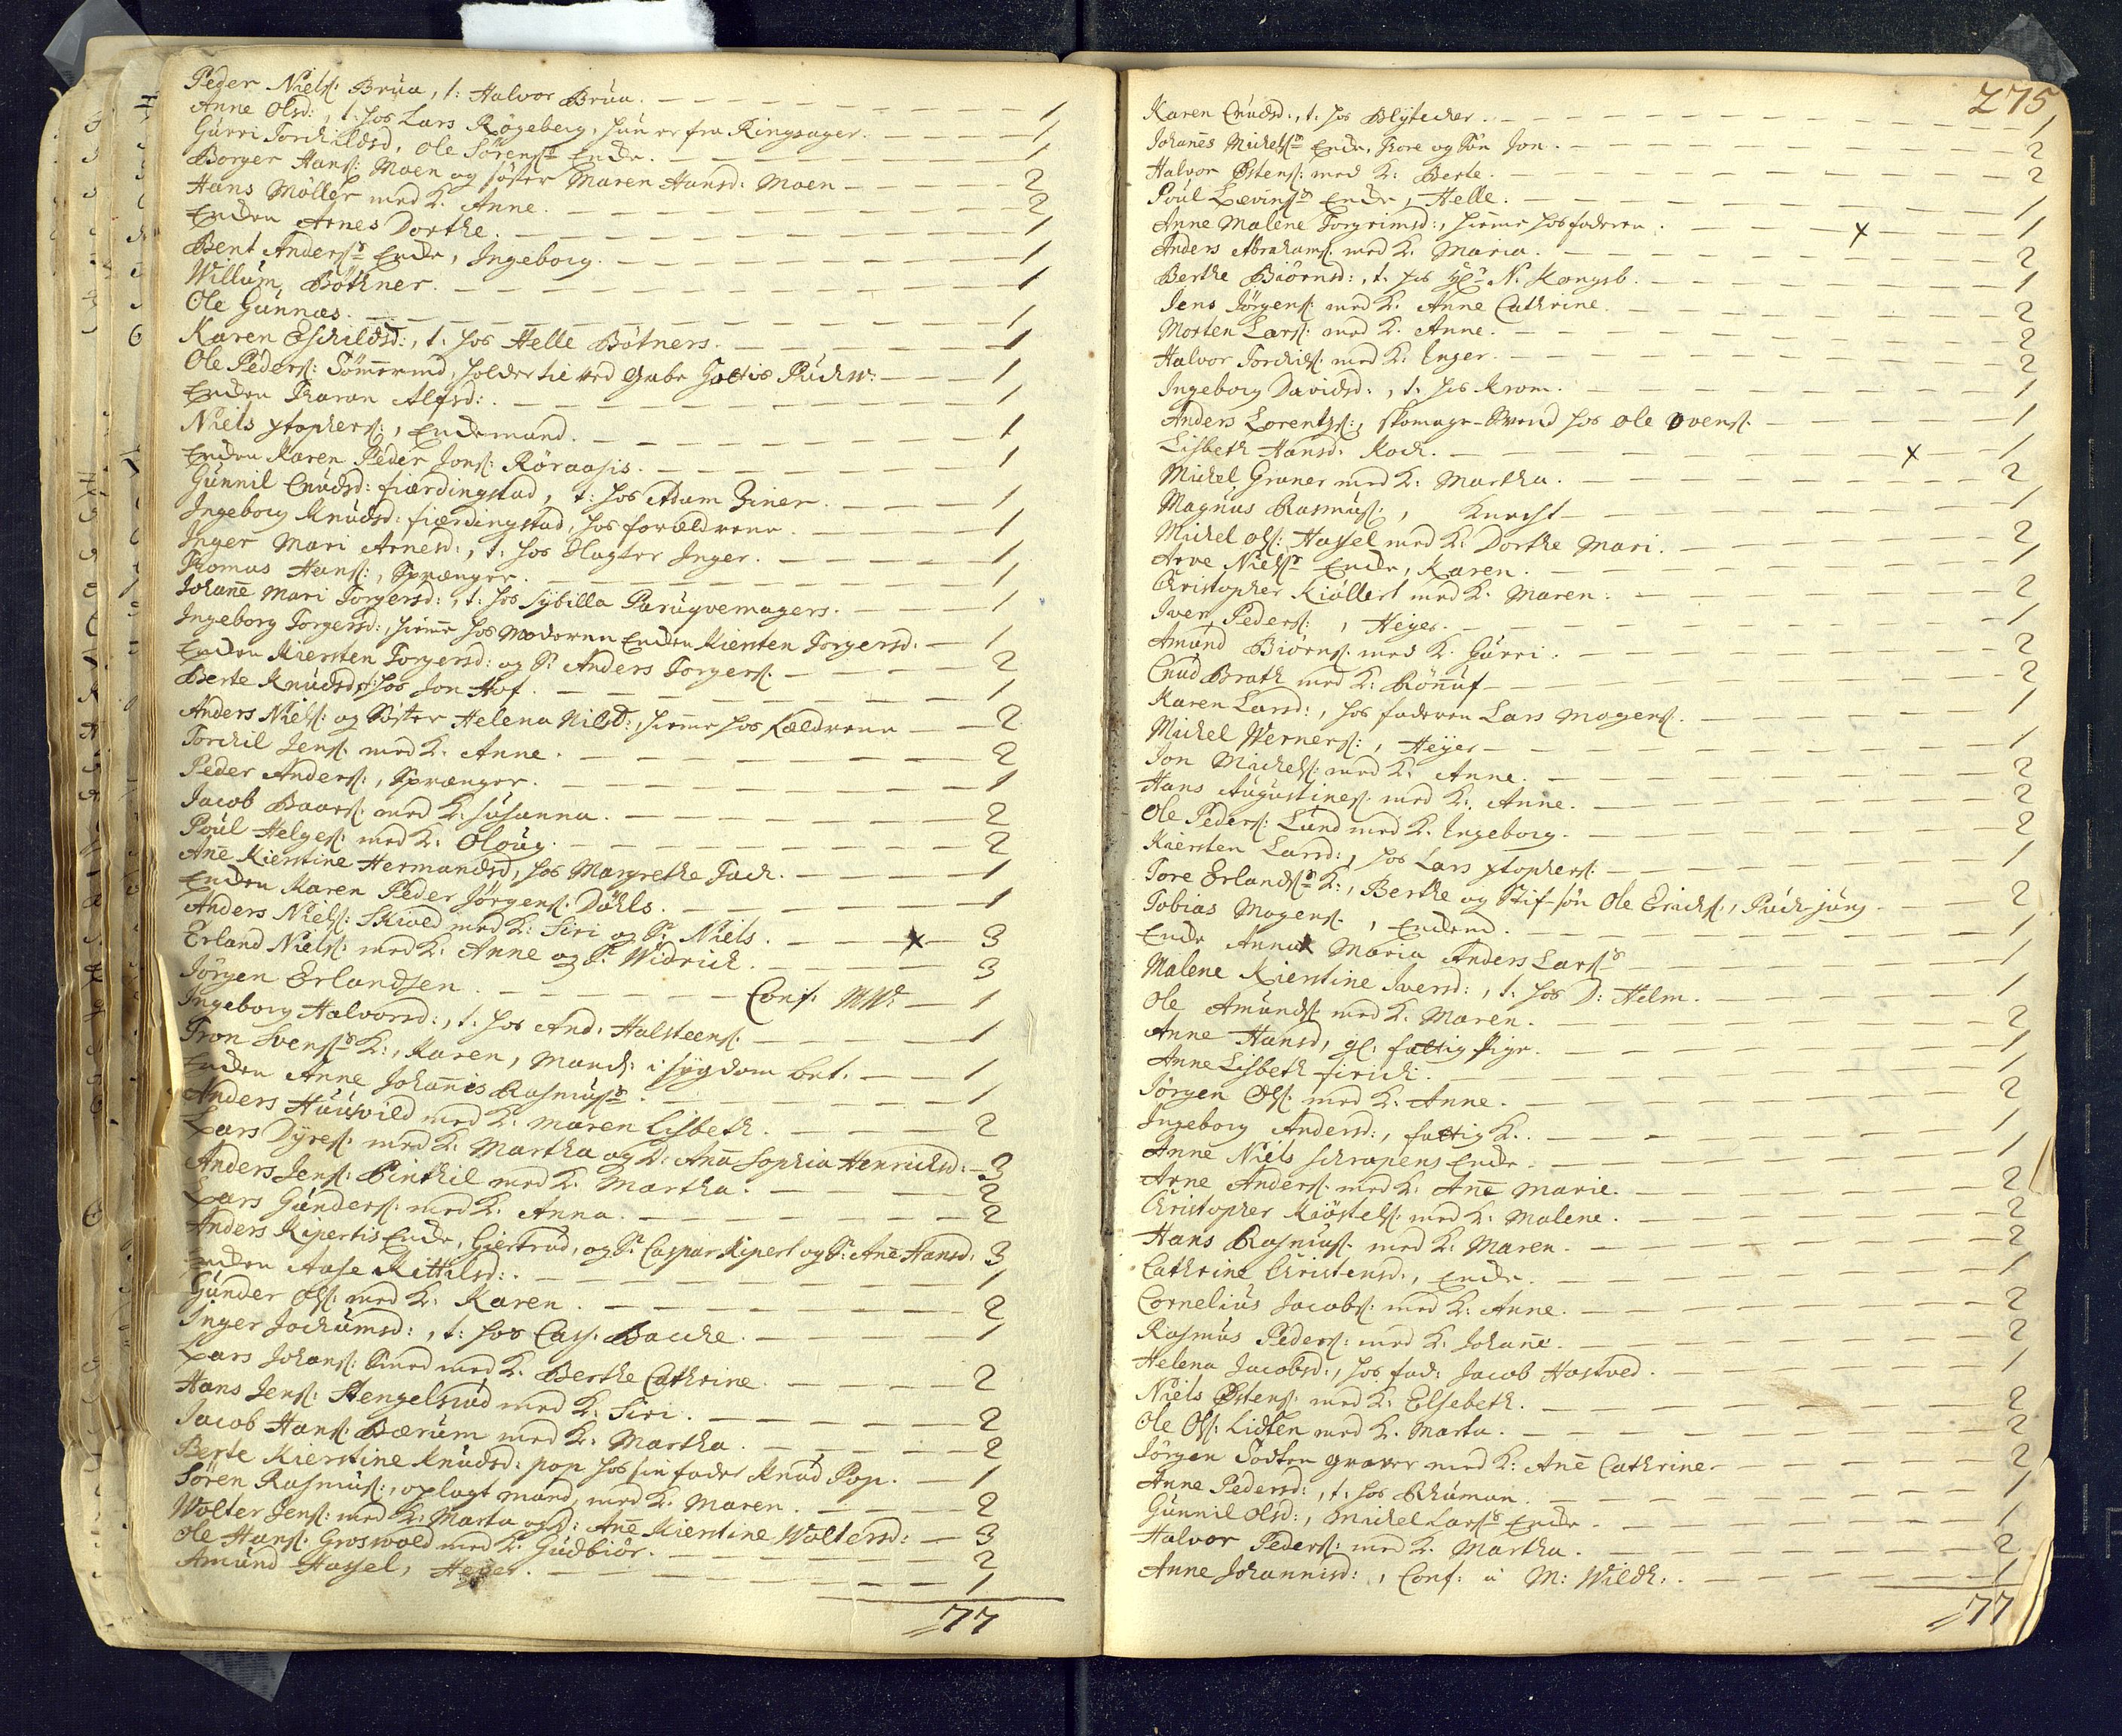 Peder Niels: Brua, t: Halvor Brua. 1
Anne Olsd:, t: hos Lars Rögeberg, hun er fra Ringsager. 1
Gurri Torchildsd, Ole Sörens Enche. 1
Borger Hans: Moen og söster Maren Hansd: Moen 2
Hans Möller med K. Anne. 2
Enchen Arnes Dorthe. 1
Bent Anders Enche, Ingeborg. 1
Willum Böthner. 1
Ole Gunnæs. 1
Karen Eschildsd:, t: hos Helle Bötners. 1
Ole Peders: Tömermd, holder til ved Gabe Gottes Puchw: 1
Enchen Karen Alfsd: 1
Niels xtophers:, Enchemand. 1
Enchen Karen Peder Jons: Röraasis. 1
Gunnil Cnudsd: fierdingstad, t: hos Adam Ziner. 1
Ingeborg Knudsd: fierdingstad, hos forældrene 1
Inger Mari Arnesd:, t: hos Slagter Inger. 1
Thomas Hans:, Sprænger. 1
Johane Mari Torgersd:, t: hos Sybilla Paruqvemagers. 1
Ingeborg Torgersd:, hieme hos Moderen Enchen Kiersten Torgersd. 1
Enchen Kiersten Torgersd: og S: Anders Torgers: 2
Berte Knudsd, t: hos Jon Hof. 1
Anders Niels: og Söster Helena Nilsd:, hieme hos Fældrene 2
Torchil Jens: med K. Anne. 2
Peder Anders:, Sprænger. 1
Jacob Baars: med K. Susanna. 2
Poul Helges: med K: Oloug. 2
Ane Kierstine Hermandsd, hos Margrethe Fach. 1
Enchen Karen Peder Jörgens: Döhls. 1
Anders Niels: Skiold med K: Siri og S: Niels. x 3
Erland Niels: med K: Anne og S: Widrich. 3
Jörgen Erlandsen. Conf. MW: 1
Ingeborg Halvorsd:, t: hos And. Halsteens: 1
Tron Svens K:, Karen, Mand: i sygdom bet. 1
Enchen Anne Johannis Rasmus 1
Anders Huusvild med K: Maren Lisbeth. 2
Lars Dyres: med K: Martha og D: Ana Sophia Henrichsd: 3
Anders Jens: Pinthil med K: Martha. 2
Lars Gunders: med K: Anna. 2
Anders Kipertis Enche, Giertrud, og S: Caspar Kipert og S: Ane Hansd: 3
Enchen Aase Kittilsd: 1
Gunder Ols: med K: Karen. 2
Inger Jochumsd:, t: hos Cass. Bacche. 1
Lars Johans: Smed med K. Berthe Cathrine. 2
Hans Jens: Stengelsrud med K: Siri. 2
Jacob Hans: Bærum med K: Martha. 2
Berte Kierstine Knudsd: Pop hos sin fader Knud Pop. 1
Sören Rasmus:, oplagt mand, med K. Maren. 2
Wolter Jens: med K: Marta og D: Ane Kierstine Woltersd: 3
Ole Hans: Groswold med K: Gudbiör. 2
Amund Hassel, Heyer. 1
77
275
Karen Cnudsd:, t: hos Blytecher. 1
Johanes Michels Enche, Thore og Sön Jon. 2
Halvor Östens: med K: Berte. 2
Poul Levins Enche, Helle. 1
Anne Malene Torgrimsd:, hieme hos faderen. x 1
Anders Abrahams: med K: Maria. 2
Berthe Biörnsd:, t: hos N. Kongsb. 1
Jens Jörgens: med K: Anne Cathrine. 2
Morten Lars: med K. Anne. 2
Halvor Torchils: med K: Inger. 2
Ingeborg Davidsd:, t: hos Krom. 1
Anders Lorentzs:, skomager-Svend hos Ole Ovens: 1
Lisbeth Hansd: Koch. x 1
Michel Graner med K: Martha. 2
Magnus Rasmus:, Knecht 1
Michel Ols: Hassel med K: Dorthe Mari. 2
Arve Niels Enche, Karen. 1
Christopher Kiöllert med K: Maren. 2
Iver Peders:, Heyer. 1
Amund Biörns: med K. Gurri. 2
Cnud Brath med K: Rönnuf 2
Karen Larsd:, hos faderen Lars Mogens: 1
Michel Werners:, Heyer 1
Jon Michels: med K: Anne. 2
Hans Augustines: med K: Anne. 2
Ole Peders: Lund med K. Ingeborg. 2
Kiersten Larsd:, hos Lars xtophers: 1
Tore Erlands K:, Berthe og Stif-sön Ole Erichs:, Puch-jung 2
Tobias Mogens:, Enchemd. 1
Enche Anna Maria Anders Lars 1
Malene Kierstine Iversd:, t: hos D: Helm. 1
Ole Amunds: med K: Maren. 2
Anne Hansd, gl: fattig Pige. 1
Anne Lisbeth Firich. 1
Jörgen Ols: med K: Anne. 2
Ingeborg Andersd:, fattig K. 1
Anne Niels Schrapens Enche. 1
Arne Anders: med K: Ane Marie. 2
Christopher Kiöstels: med K: Malene. 2
Hans Rasmus: med K: Maren. 2
Cathrine Christensd:, Enche. 1
Cornelius Jacobs: med K: Anne. 2
Rasmus Peders: med K: Johane. 2
Helena Jacobsd:, hos fad: Jacob Hastved. 1
Niels Östens: med K: Elsebeth. 2
Ole Ols: Lidsten med K. Marta. 2
Jörgen Todten graver med K: Ane Cathrine 2
Anne Pedersd:, t: hos Schuman. 1
Gunnil Olsd:, Michel Lars Enche. 1
Halvor Peders: med K. Martha. 2
Anne Johannisd:, Conf: a M: Wildh: 1
77